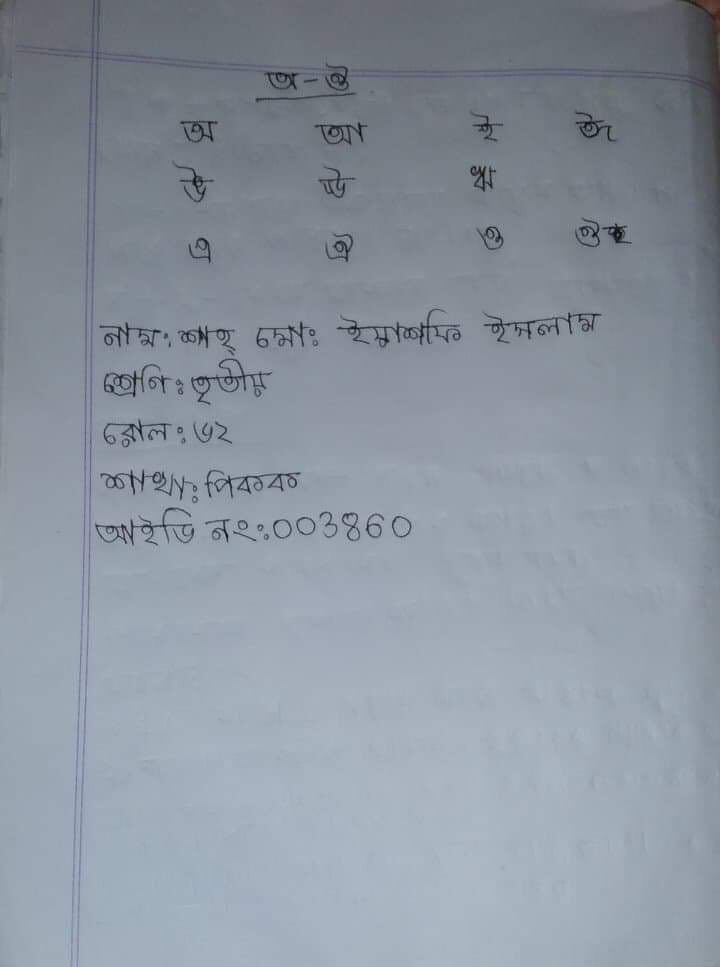 অ-ঔ
অ আ ই ঈ
উ ঊ ঋ
এ ঐ ও ঔ
নাম: শাহ্ মোঃ ইয়াশফি ইসলাম
শ্রেণি: তৃতীয়
রোল: ৬২
শাখা: পিকক
আইডি নং: 003860